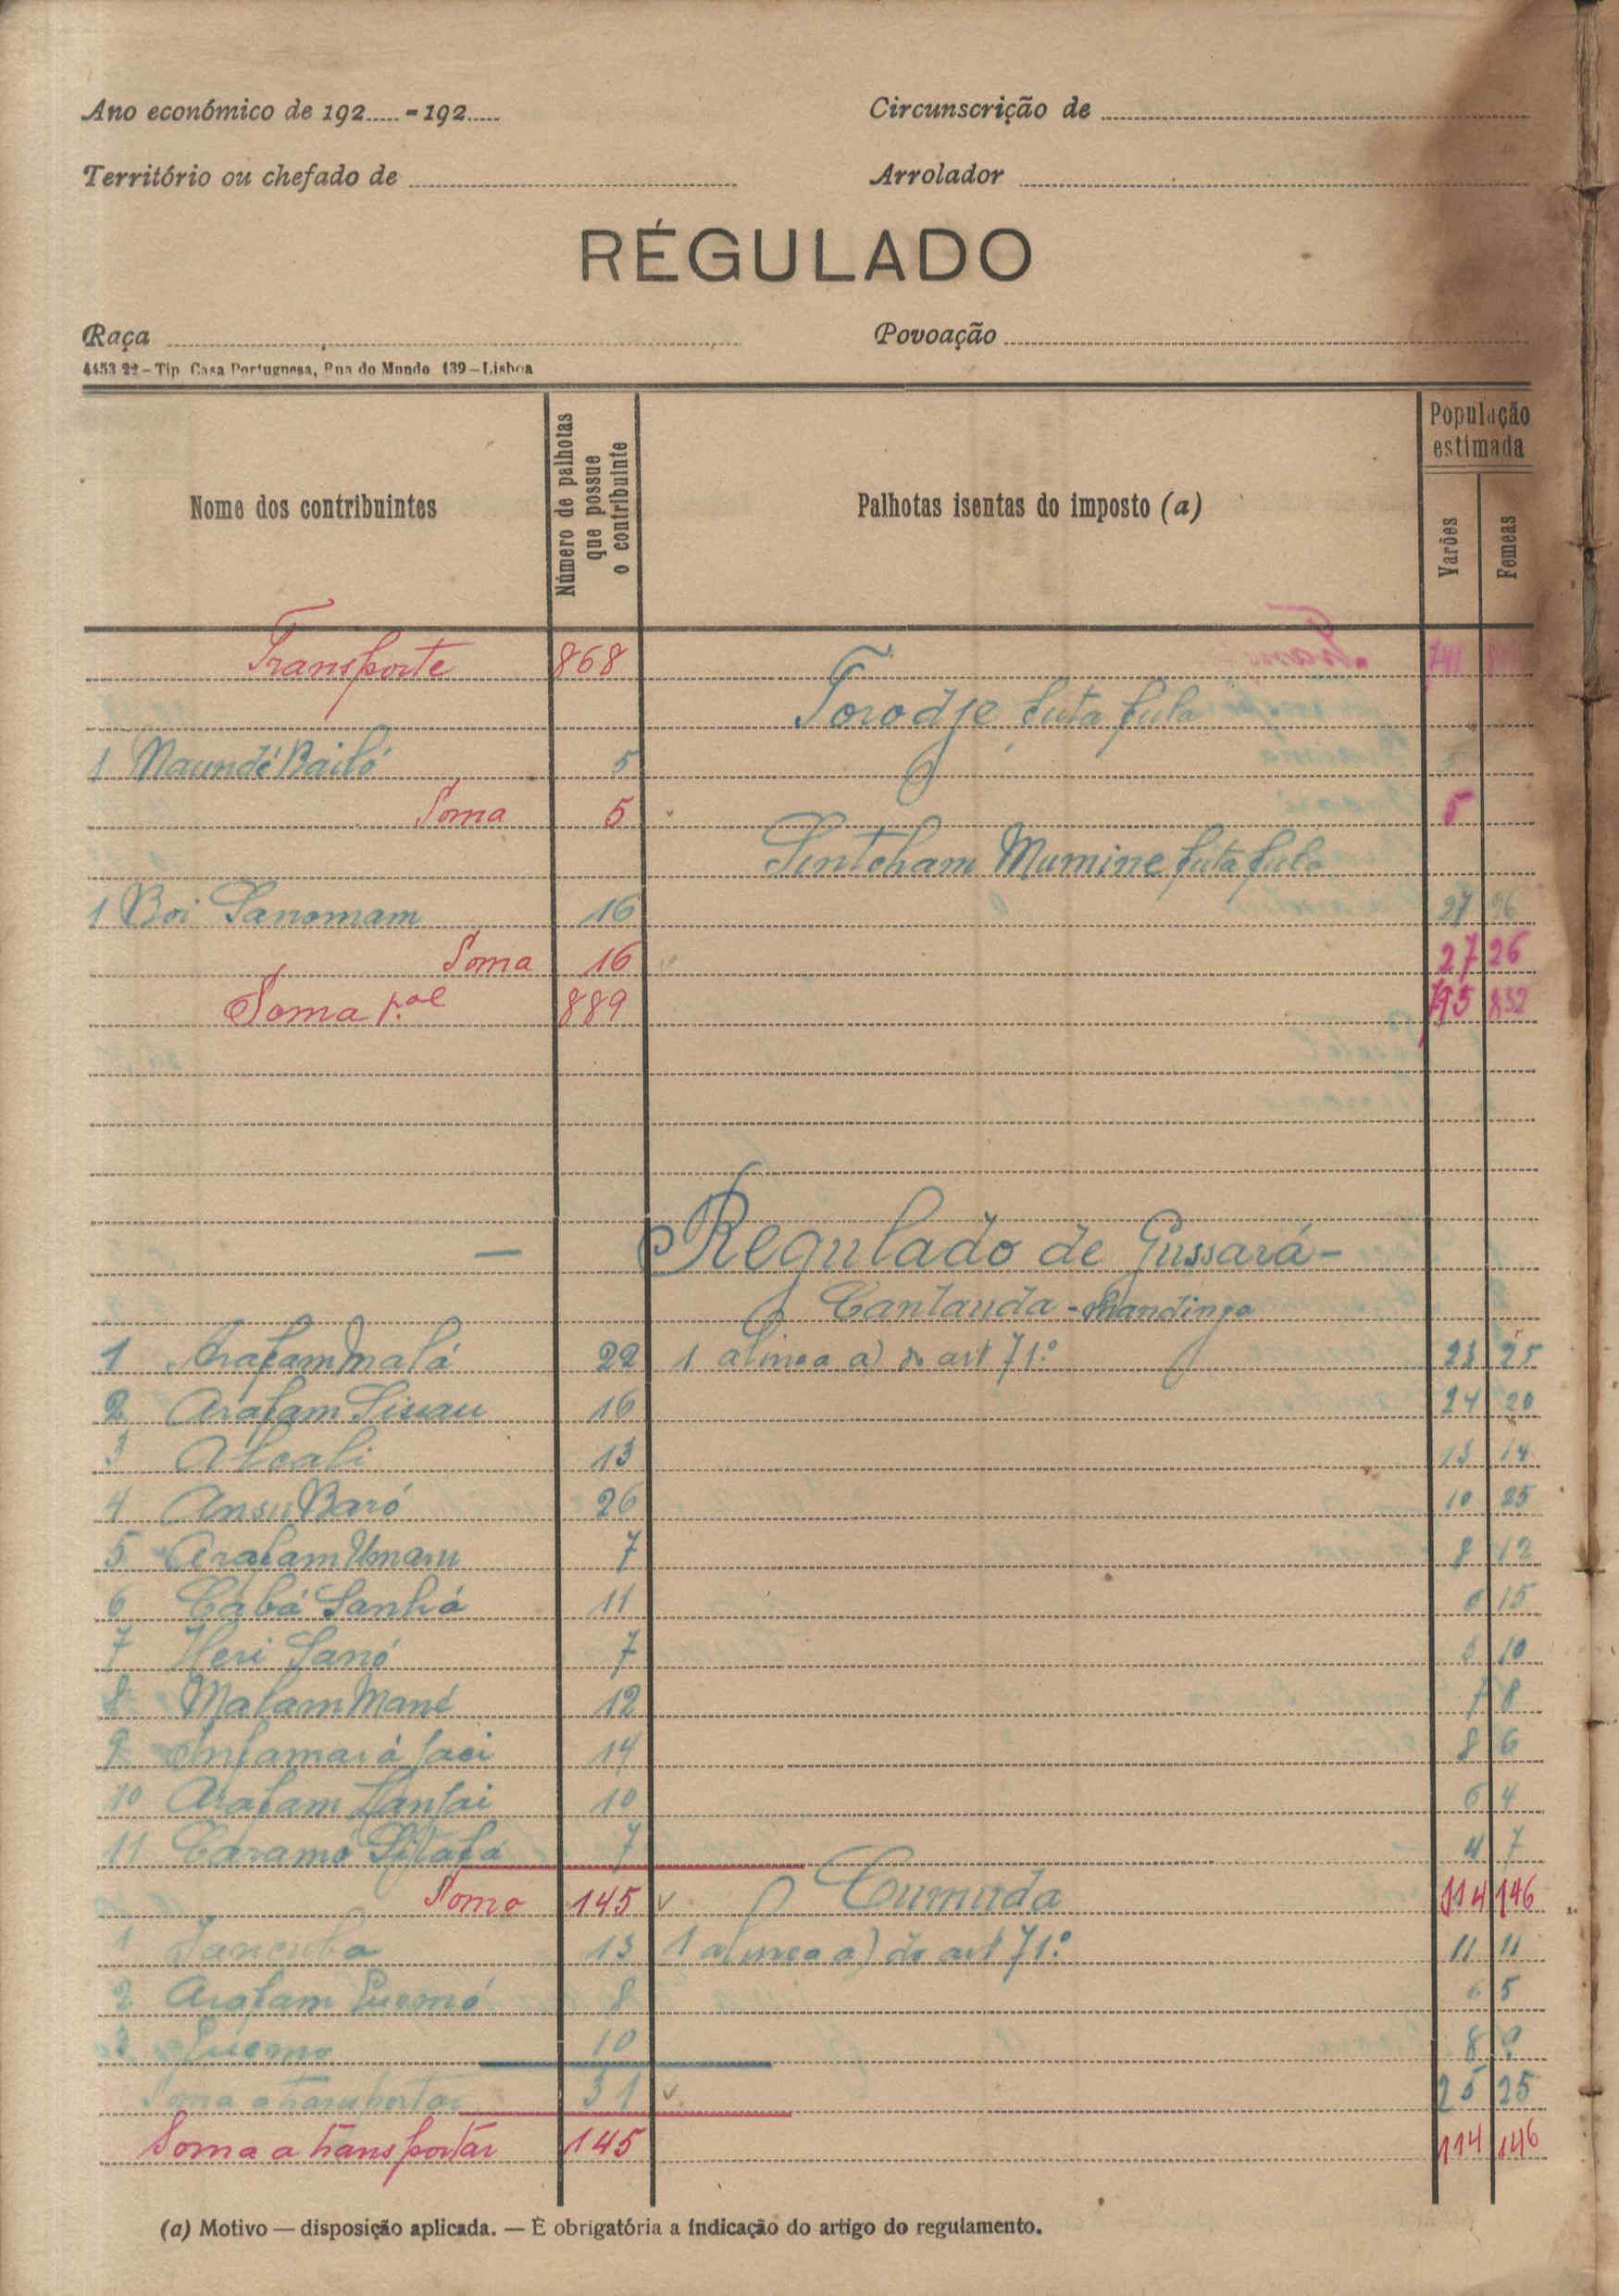 Ano económico de 192..... - 192..... Circunscrição de
Território ou chefado de Arrolador
RÉGULADO
Raça Povoação
4453 22 – Tip Casa Portuguesa, Rua do Mundo 139 – Lisboa
Nome dos contribuintes Número de palhotas que possue o contribuinte Palhotas isentas do imposto (a) População estimada Varões Femeas
Transporte 868
Torodje futa fula
1 Naundé Bailó 5
Soma 5 5
Sintcham Mumine futa fula
1 Boi Sanomam 16 27 26
Soma 16 27 26
Soma p.al 889 795 832
— Regulado de Gussará -
Cantauda - mandinga
1 Arafam Malá 22 1 alinea a) do art 71.º 23 25
2 Arafam Sissau 16 24 20
3 Alcali 13 13 14
4 Ansu Baró 26 10 25
5 Arafam Umaru 7 8 12
6 Cabá Sanhá 11 6 15
7 Heri Sanó 7 6 10
8 Malam Mané 12 7 8
9 Infamará 14 8 6
10 Arafam 10 6 4
11 Caramó Sitafa 7 4 7
Soma 145 v Cumuda 114 146
1 Jancuba 13 1 alinea a) do art 71.º 11 11
2 Arafam 8 6 5
3 10 8 9
Soma a transportar 31 v 25 25
Soma a transportar 145 114 146
(a) Motivo — disposição aplicada. — É obrigatória a indicação do artigo do regulamento.